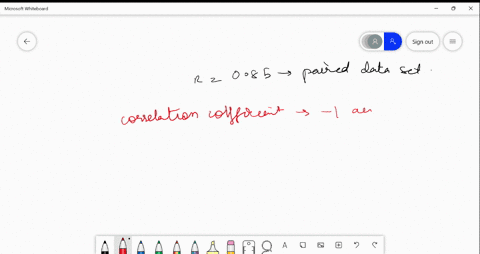 Microsoft Whiteboard
Sign out
r = 0.85 → paired data set.
correlation coefficient → -1